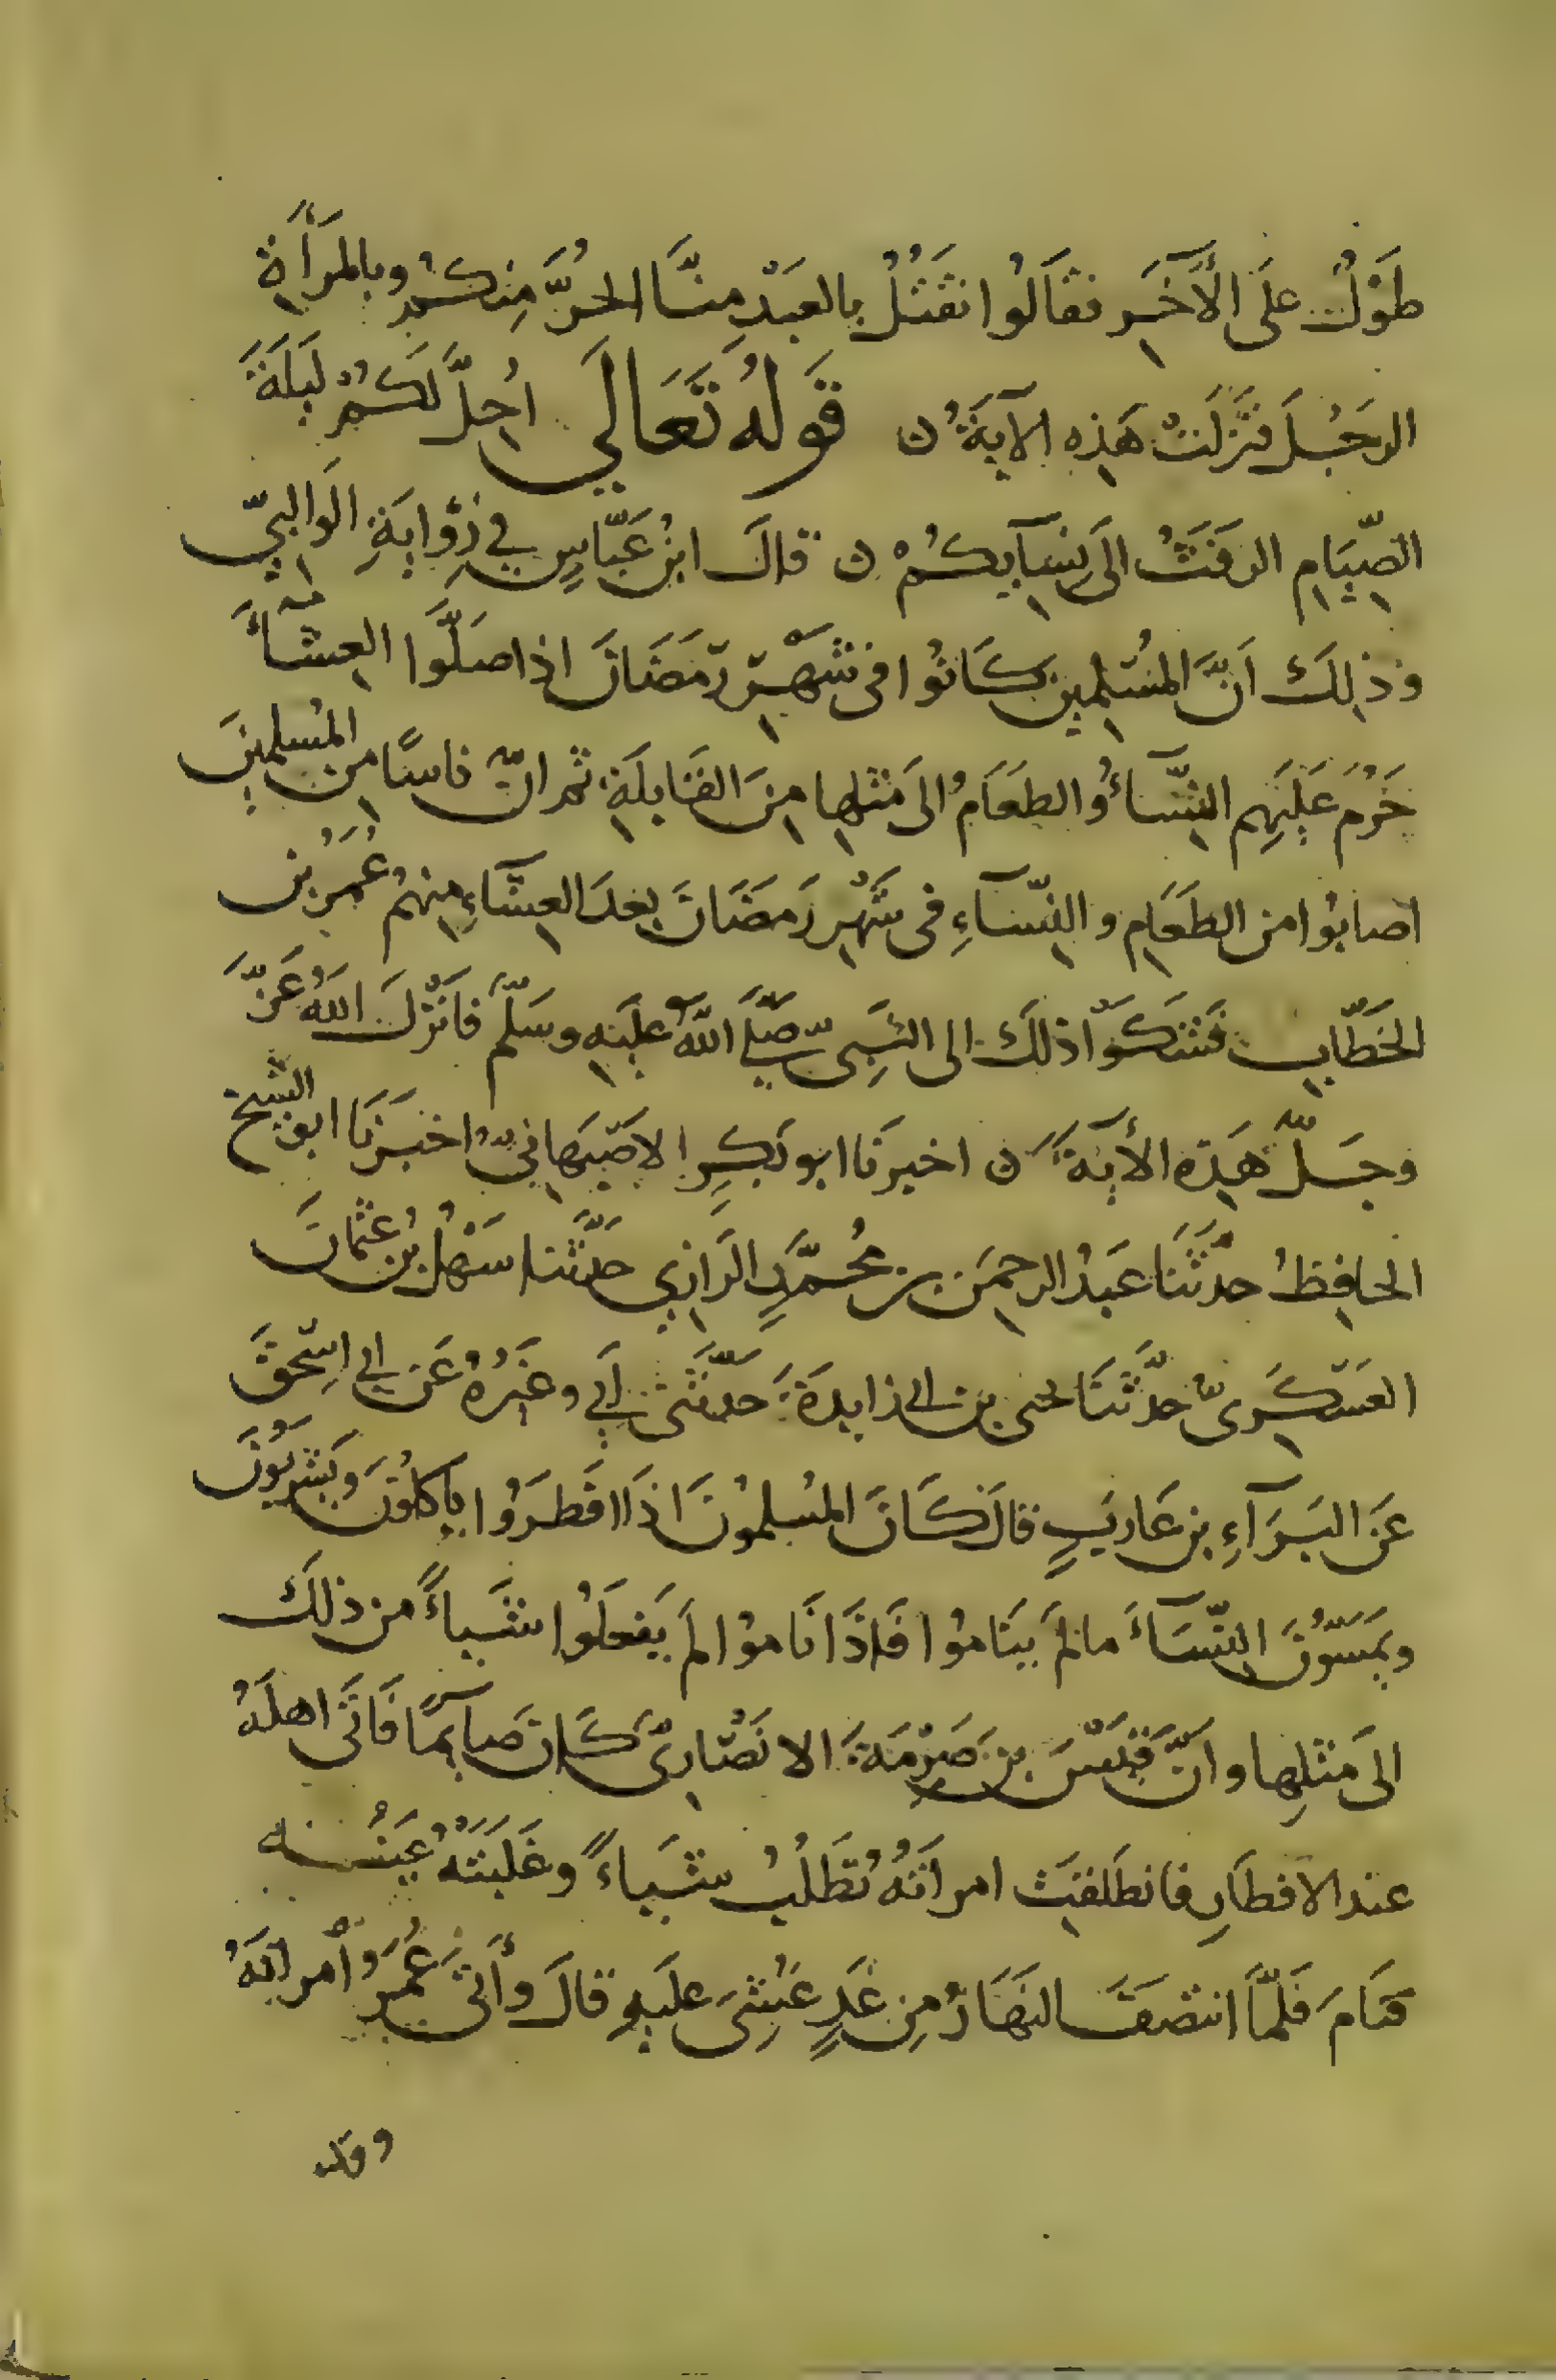 طَوْلٌ عَلَى الآخَرِ فقَالُوا نقْتُلُ بالعَبْدِ مِنَّا الحُرَّ مِنكُم وبالمَرأَةِ
الرَجُلَ فنَزَلَتْ هَذِهِ الآيَةُ ن قَولهُ تَعَالَى اُحِلَّ لَكُمْ لَيلَةَ
الصِّيَامِ الرفَثُ الَى نِسَآيِكُمْ ن قالَ ابنُ عَبَّاسٍ في رِوَايَةِ الوَالِبيّ
وَذلِكَ اَنَّ المُسْلِمينَ كَانُوا فى شَهْرِ رَمَضَانَ اذا صَلَّوا العِشَآءَ
حَرُمَ عَلَيهِم النِّسَاءُ والطعَامُ الى مَثلِها مِنَ القَابِلَةِ ثم انّ ناسًا مِن المُسلِمينَ
اصابُوا من الطعَامِ والنِّسآءِ فى شَهْرِ رَمَضَانَ بعدَ العِشَآءِ مِنهمْ عُمَرُ بن
الخطَّابِ فَشَكَوْا ذلكَ الى النَّبِىّ صَلَّى اللهُ عَلَيهِ وسَلّمَ فاَنزلَ اللهُ عَزَّ
وجَلَّ هَذِه الأيَةَ ن اخبرَنَا ابو بَكرٍ الاصبَهَانِيُّ اخبَرَنَا ابو الشيخ
الحَافِظُ حدَّثنَا عَبدُ الرحمَنِ بن مُحمَّدٍ الرَازِي حدَّثنا سَهْلُ بن عُثمَانَ
العَسْكَرِىّ حدَّثنَا يحيى بن ابى زايدَةَ حدَّثنى اَبي وغَيرُهُ عَن ابي اسْحٰقَ
عَن البَرَآءِ بن عَازِبٍ قالَ كَانَ المُسلِمُونَ اذَا افطَرُوا يَاكلُونَ وَيَشرَبُونَ
ويَمَسُّونَ النِّسَآءَ مالَمْ يَنَامُوا فَاذَا نَامُوا لم يَفعَلُوا شَيأً من ذلكَ
الى مَثلِها وانّ قَيسَ بن صِرْمَةَ الانصَارِىّ كَانَ صَآيمًا فَاَتَى اهلَهُ
عند الافطَارِ فانطلَقَتِ امراَتُهُ تَطلُبُ شَيأً وغَلَبَتْهُ عَينُهُ
فنَامَ فَلَمَّا انتصَفَ النهَارُ مِن غَدٍ غُشِىَ عليَهِ قالَ وأَتَى عُمَرُ امراتَهُ
وقد